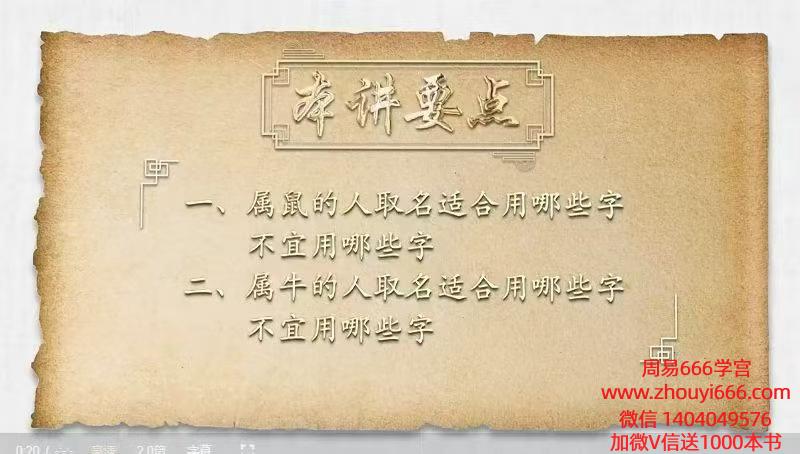 本讲要点
一、属鼠的人取名适合用哪些字
不宜用哪些字
二、属牛的人取名适合用哪些字
不宜用哪些字
周易666学宫
www.zhouyi666.com
微信 1404049576
加微V信送1000本书
0:20
字幕